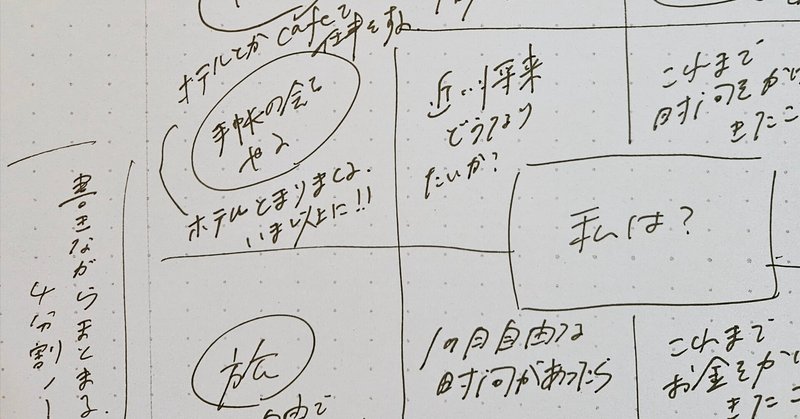 ホテルとか cafeで
仕事をする.
手帳の会で
やる
ホテルとまりまくる.
いま以上に!!
近い将来
どうなり
たいか?
これまで
時間をかけ
きたこ
私は?
書きながらまとめる.
4分割ノー
1ヶ月自由な
時間があったら
これまで
お金をかけ
きたこ
自由で